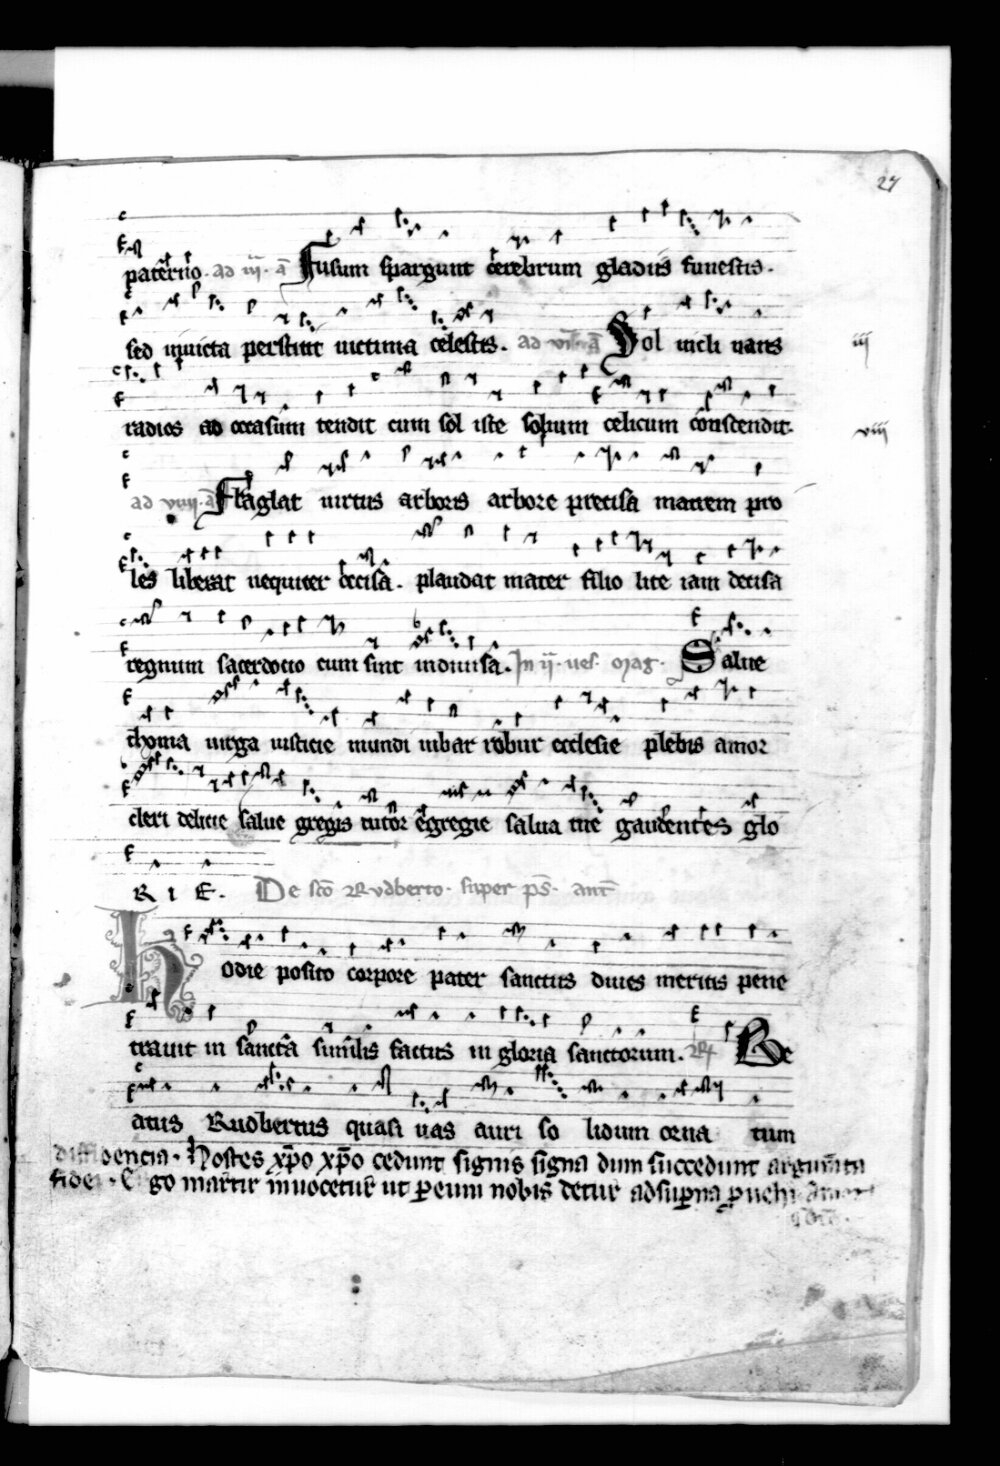 27
pat̄erno. ad iii. ā Fusum spargunt cerebrum gladiis funestis.
sed inuicta perstitit uictima celestis. ad Sol incli nans
iij
radios ad occasum tendit cum sol iste solium celicum conscendit.
viij
ad viiij. ā Flaglat uirtus arboris arbore precisa matrem pro
les liberat nequiter cecisa. plaudat mater filio lite iam decisa
regnum sacerdotio cum sint indiuisa. In ii. ues. mag. Salue
thoma uirga iusticie mundi iubar robur ecclesie plebis amor
cleri delicie salue gregis tutor egregie salua tue gaudentes glo
R I E. De sc̄o Rudberto. super ps̄. ant̄
Hodie posito corpore pater sanctus diues meritis pene
trauit in sancta similis factus in gloria sanctorum. R Be
atus Rudbertus quasi uas auri so lidum orna tum
diffidencia. Hostes xp̄o xp̄o cedunt signis signa dum succedunt
fidei. Ergo martir inuocetur ut p eum nobis detur ad sup̄na